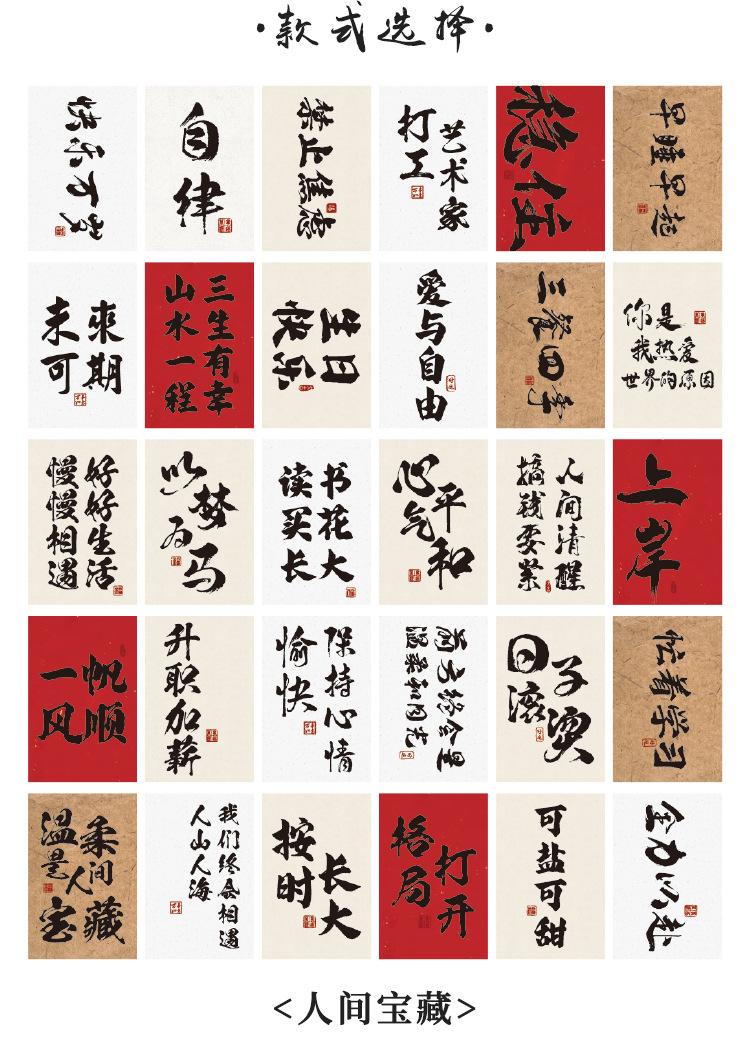 款式选择
快乐万岁
自律
禁止焦虑
打工
艺术家
稳住
早睡早起
未來
可期
三生有幸
山水一程
生日
快乐
爱与自由
三餐四季
你是
我热爱
世界的原因
好好生活
慢慢相遇
以梦
为马
读书
买花
长大
心平
气和
人间清醒
搞钱要紧
上岸
一帆
风顺
升职加薪
保持心情
愉快
温柔和月光
日子
滚烫
忙着学习
温柔
是人间
宝藏
我们终会相遇
人山人海
按时
长大
打开
格局
可盐可甜
全力以赴
<人间宝藏>